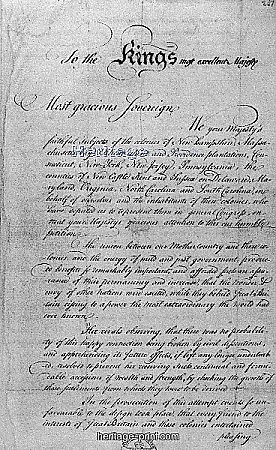 To the Kings most excellent Majesty
Most gracious Sovereign
We your Majesty's
faithful subjects of the colonies of New hampshire, Massa-
chusetts and Providence plantations, Con-
necticut, New-York, New Jersey, Pennsylvania, the
counties of New Castle Kent and Sussex on Delaware, Ma-
ryland, Virginia, North Carolina and South Carolina, in
behalf of ourselves and the inhabitants of these colonies, who
have deputed us to represent them in general Congress, en-
treat your Majesty's gracious attention to this our humble
petition.
The union between our Mother Country and these co-
lonies, and the energy of mild and just government, produced
benefits so remarkably important, and afforded such an assu-
rance of their permanency and increase, that the wonder & en-
vy of other nations were excited, while they beheld Great Bri-
tain rising to a power the most extraordinary the world had
ever known.
Her rivals observing, that there was no probability
of this happy connection being broken by civil dissentions,
and apprehending its future effects, if left any longer undisturb-
ed, resolved to prevent her receiving such continual and formi-
dable accessions of wealth and strength, by checking the growth of
these settlements from which they were to be derived.
In the prosecution of this attempt events so un-
favourable to the design took place, that every friend to the
interests of Great Britain and these colonies entertained
pleasing
heritage-print.com